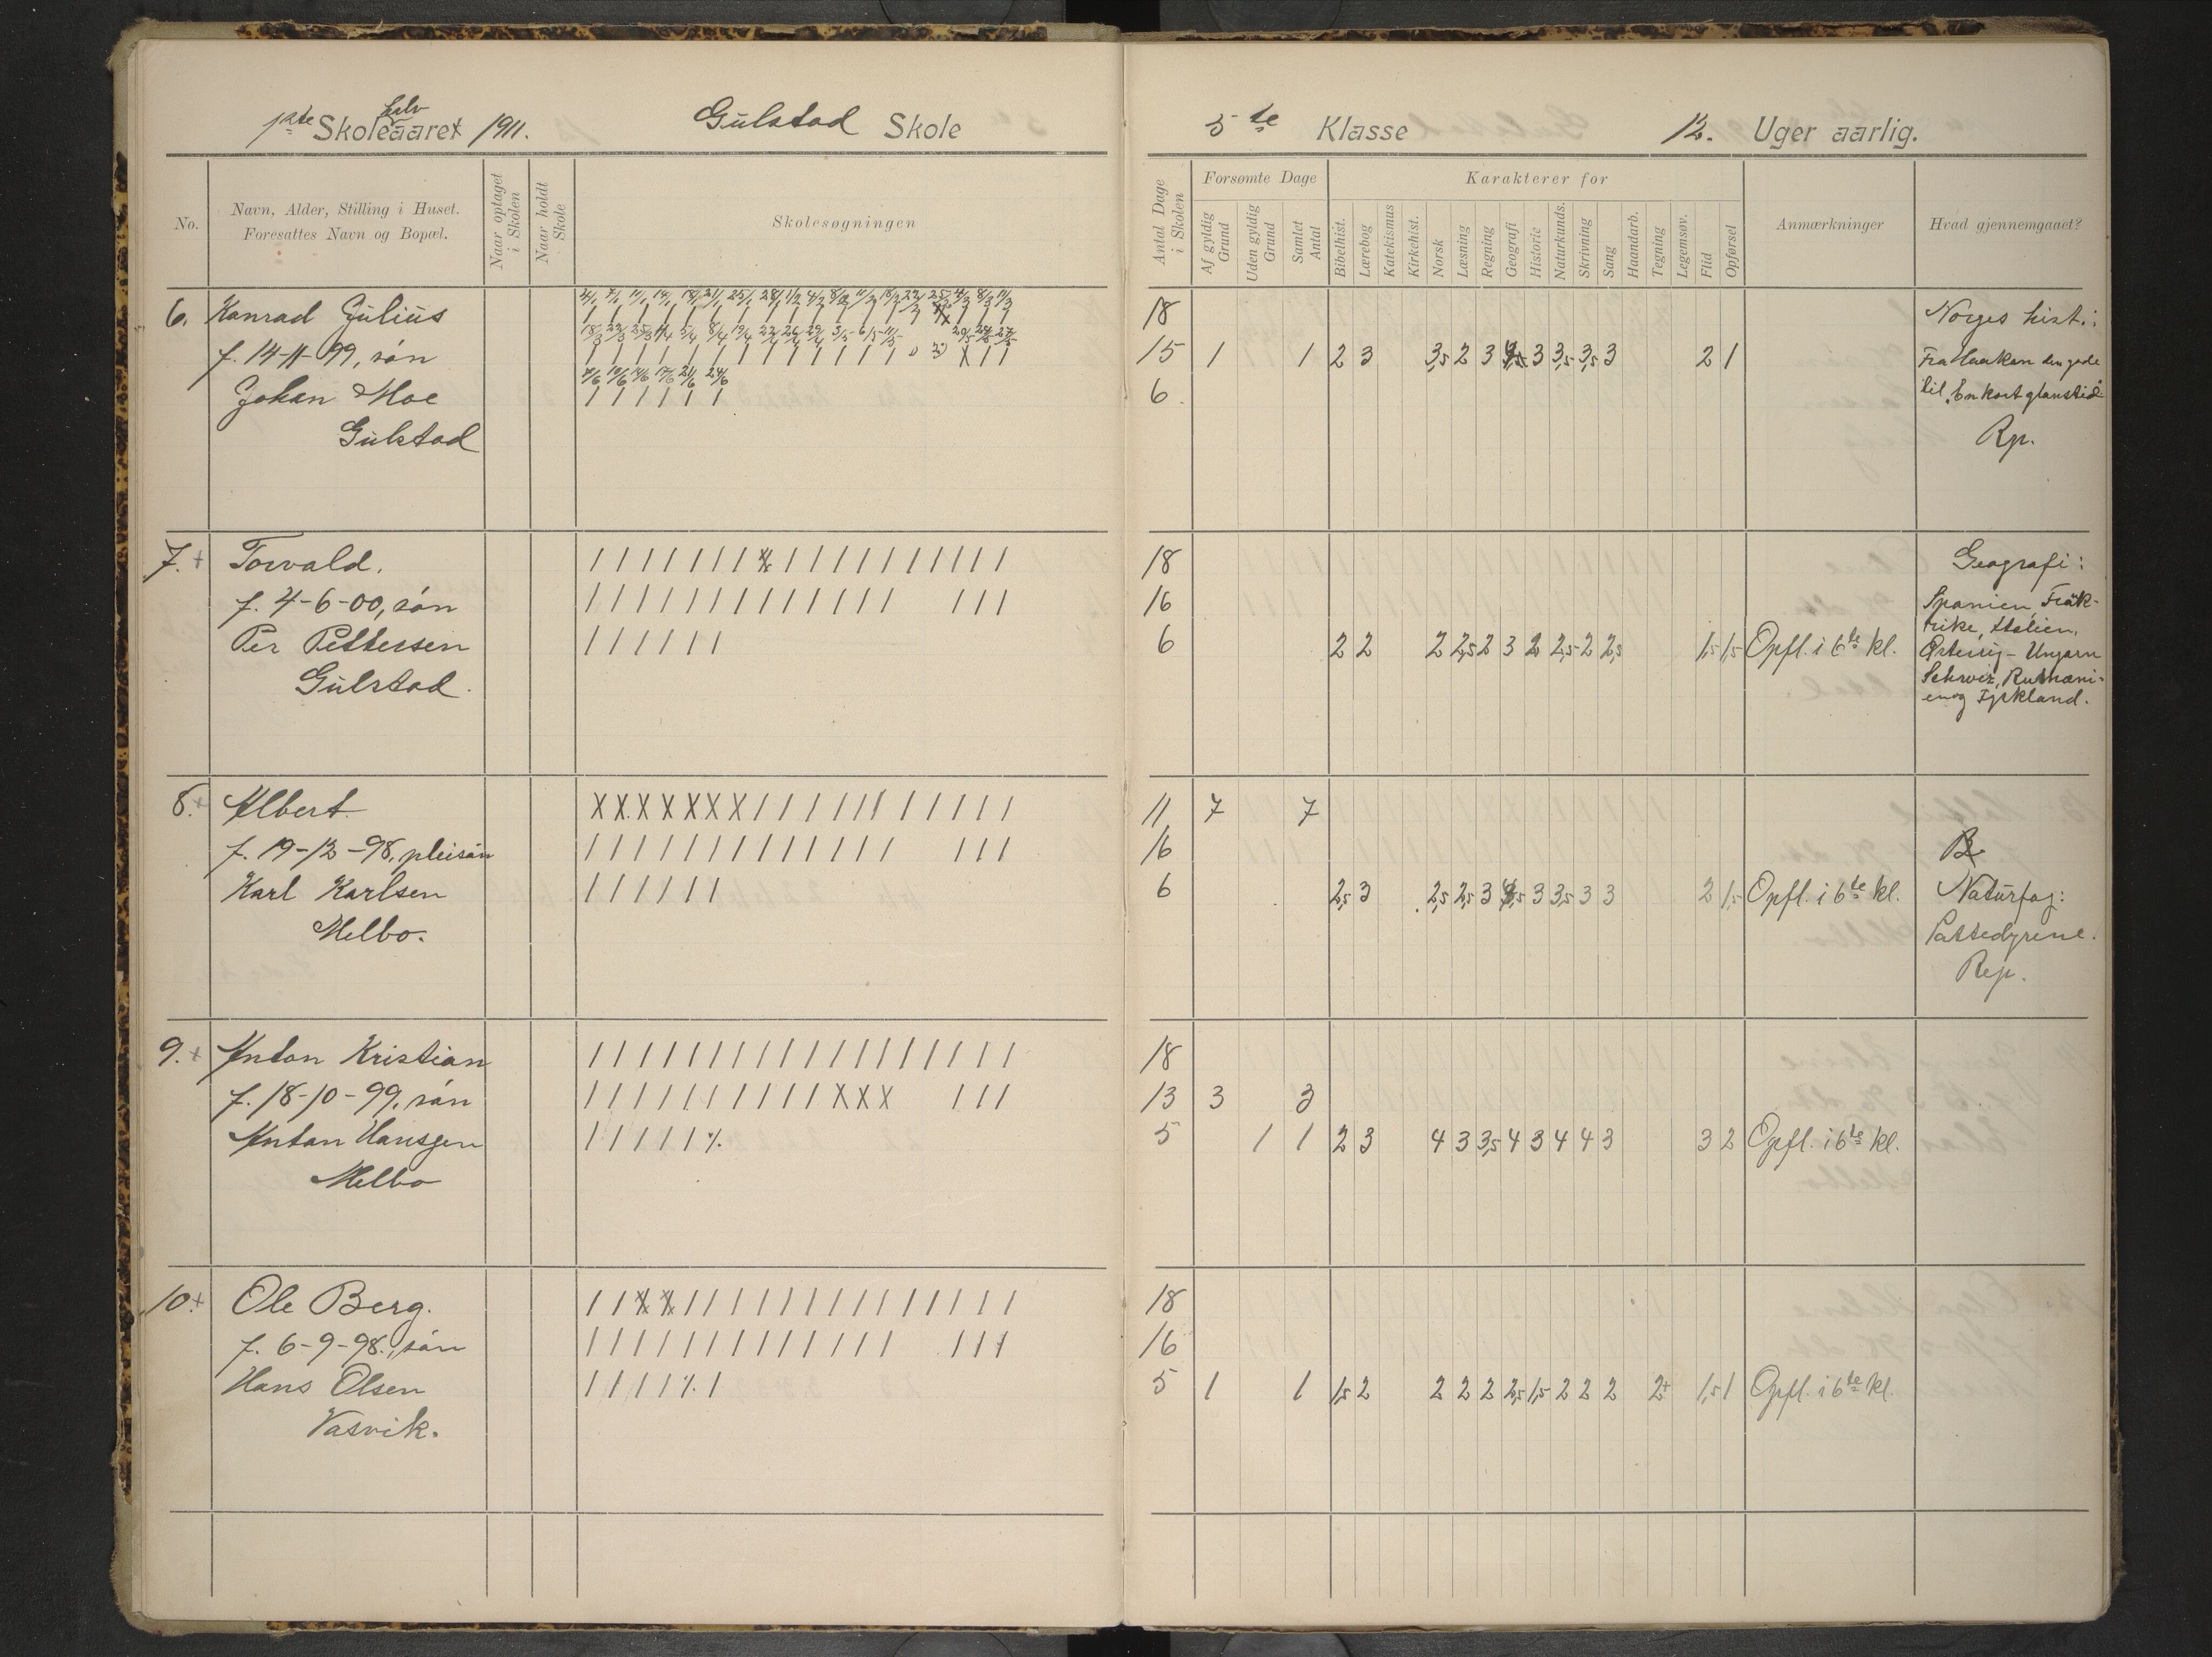 1ste Skolehalvaaret 1911.
Gulstad Skole
5te Klasse
12. Uger aarlig.
No.
Navn, Alder, Stilling i Huset.
Foresattes Navn og Bopæl.
Naar optaget
i Skolen
Naar holdt
Skole
Skolesøgningen
Antal Dage
i Skolen
Forsømte Dage
Af gyldig
Grund
Uden gyldig
Grund
Samlet
Antal
Karakterer for
Bibelhist.
Lærebog
Katekismus
Kirkehist.
Norsk
Læsning
Regning
Geografi
Historie
Naturkunds.
Skrivning
Sang
Haandarb.
Tegning
Legemsøv.
Flid
Opførsel
Anmærkninger
Hvad gjennemgaaet?
6. Konrad Julius
f. 14-11-99, søn
Johan Moe
Gulstad
18
15 1 1 2 3 3,5 2 3 3 3,5 3,5 3 2 1
6
Norges hist.:
Fra Haakon den gode
til "En kort glanstid"
Rp.
7. + Torvald.
f. 4-6-00, søn
Per Pettersen
Gulstad.
18
16
6 2 2 2 2,5 2 3 2 2,5 2 2,5 1,5 1,5 Opfl. i 6te kl.
Geografi:
Spanien, Frak-
rike, Italien,
Østerrig-Ungarn
Schweiz, Rumæni-
en og Tyrkland.
8. + Albert.
f. 19-12-98, pleisøn
Karl Karlsen
Melbo.
11 7 7
16
6 2,5 3 2,5 2,5 3 3 3,5 3 3 2 1,5 Opfl. i 6te kl.
Naturfag:
Pattedyrene.
Rep.
9. + Anton Kristian
f. 18-10-99, søn
Anton Hansen
Melbo
18
13 3 3
5 1 1 2 3 4 3 3,5 4 3 4 4 3 3 2 Opfl. i 6te kl.
10. + Ole Berg.
f. 6-9-98., søn
Hans Olsen
Vasvik.
18
16
5 1 1 1,5 2 2 2 2 2,5 1,5 2 2 2 2+ 1,5 1 Opfl. i 6te kl.